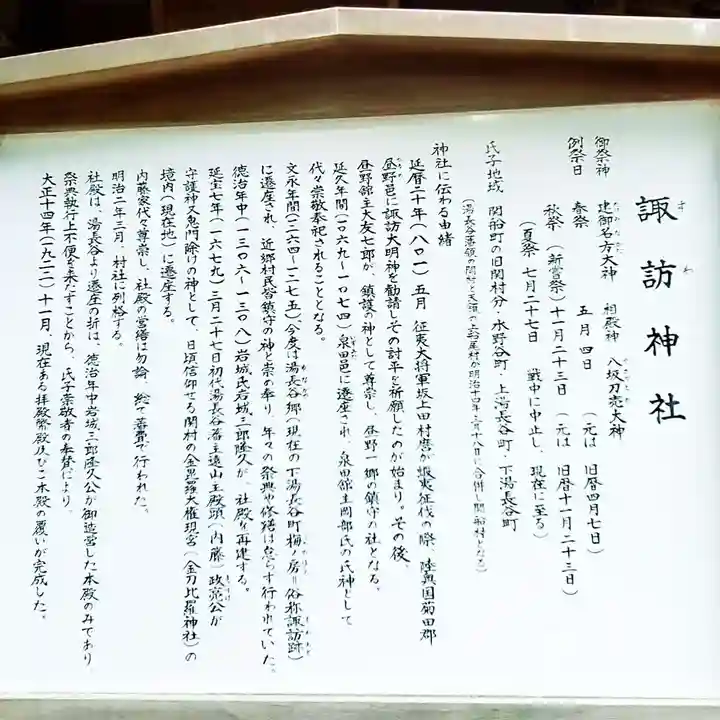 諏訪神社
すわ
御祭神　建御名方大神　相殿神　八坂刀売大神
例祭日　春祭　五月四日　（元は　旧暦四月七日）
秋祭（新嘗祭）十一月二十三日　（元は　旧暦十一月二十三日）
（夏祭　七月二十七日　戦中に中止し、現在に至る）
氏子地域　関船町の旧関村分・水野谷町・上湯長谷町・下湯長谷町
（湯長谷藩領の関村と天領の上船尾村が明治十四年三月十八日に合併し関船村となる）
神社に伝わる由緒
延暦二十年（八〇一）五月　征夷大将軍坂上田村麿が蝦夷征伐の際　陸奥国菊田郡
昼野邑に諏訪大明神を勧請しその討平を祈願したのが始まり。その後、
昼野館主大友七郎が、鎮護の神として尊崇し、昼野一郷の鎮守の社となる。
延久年間（一〇六九～一〇七四）泉田邑に遷座され、泉田館主岡部氏の氏神として
代々崇敬奉祀されることとなる。
文永年間（一二六四～一二七五）今度は湯長谷郷（現在の下湯長谷町梅ノ房＝俗称諏訪跡）
に遷座され、近郷村民皆鎮守の神と崇め奉り、年々の祭典や修繕は怠らず行われていた。
徳治年中（一三〇六～一三〇八）岩城氏岩城三郎隆久が、社殿を再建する。
延宝七年（一六七九）三月二十七日初代湯長谷藩主遠山主殿頭（内藤）政亮公が
守護神又鬼門除けの神として、日頃信仰せる関村の金毘羅大権現宮（金刀比羅神社）の
境内（現在地）に遷座する。
内藤家代々尊崇し、社殿の営繕は勿論　総て藩費で行われた。
明治二年三月、村社に列格する。
社殿は、湯長谷より遷座の折は、徳治年中岩城三郎隆久公が御造営した本殿のみであり
祭典執行上不便を来たすことから、氏子崇敬者の奉賛により、
大正十四年（一九二二）十一月、現在ある拝殿幣殿及びご本殿の覆いが完成した。